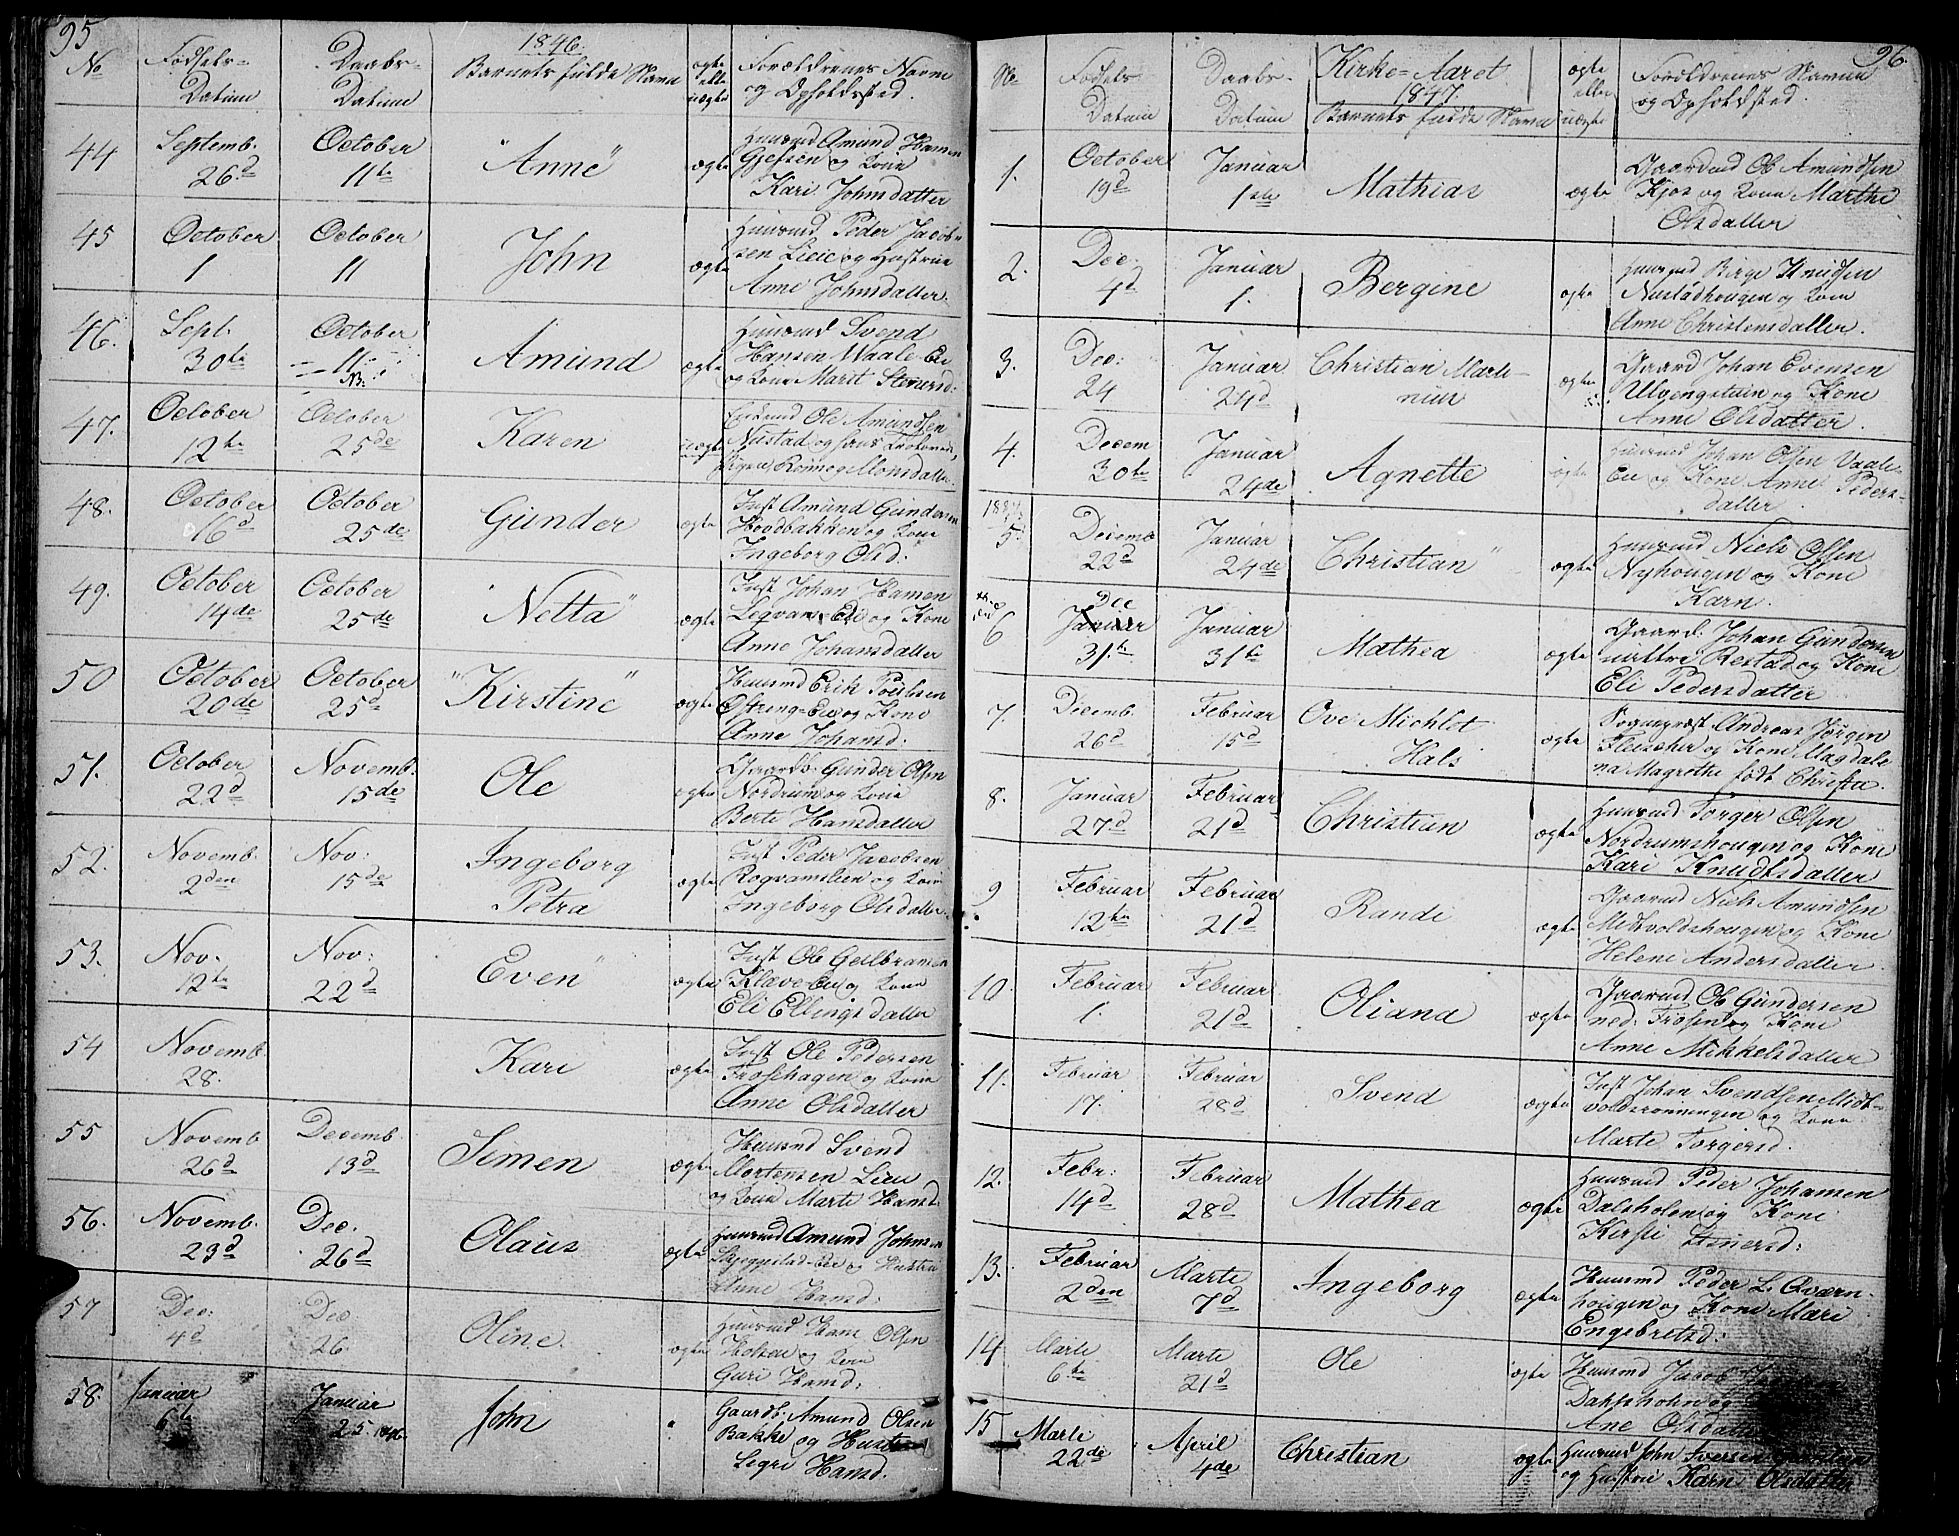 95
1846.
No
Fødsels-
Datum
Daabs-
Datum
Barnets fulde Navn
ægte
elle
uægte
Forældrenes Navne
og Opholdsted.
44
Septemb.
26.d
October
11te
"Anne"
ægte
Huusmd Amund Hansen
og Kone
Kari Johnsdatter
45
October
1
October
11
John
ægte
Huusmd Peder Jacob-
sen Lieie og Hustrue
Anne Johnsdatter.
46.
Sept.
30te
October
11
NB.
Amund
ægte
Huusmd Svend
Hansen Waale-Eie
og Kone Marit
47.
October
12te
October
25de
Karen
uægte
Ole Amundsen
Nustad og
Monsdatter.
48.
October
16d
October
25de
Gunder
ægte
Inst Amund Gundersen
og Kone
Ingeborg Olsd:
49.
October
14de
October
25de
"Netta"
ægte
Inst Johan Hansen
Eie og Kone
Anne Johansdatter
50
October
20de
October
25d
"Kirstine"
ægte
Huusmd Erik
Eie og Kone
Anne Johansd:
51.
October
22d
Novemb.
15de
Ole
ægte
Gaardb. Gunder Olsen
Nordrum og Kone
Berte Hansdatter
52.
Novemb.
2den
Nov:
15de
Ingeborg
Petra
ægte
Inst Peder Jacobsen
og Kone
Ingeborg Olsdatter.
53.
Nov.
12te
Nov:
22d
Even"
ægte
Inst Ole
Klæve-Eie og Kone
Eli datter
54
Novemb.
28.
Kari
ægte
Inst Ole Pedersen
og Kone
Anne Olsdatter
55
Novemb
26d
Decemb.
13d
Simen
ægte
Huusmd Svend
Mortensen
og Kone Marte Hansd.
56.
Novemb.
23d
Dec.
26d
Olaus
ægte
Huusmd Amund Johnsen
og Hustru
Anne Hansd:
57
Dec:
4d
Dec
26
Oline.
ægte
Huusmd Hans Olsen
og Kone
Guri Hansd:
58.
Januar
6te
Januar
25 1846.
John
"
Gaardb. Amund Olsen
Bakke og Hustr
Hansd.
96.
No
Fødsels
Datum
Daabs-
Datum
Kirke-Aaret
1847.
Barnets fulde Navn
ægte
eller
uægte
Forældrenes Navne
og Opholdsted.
1.
October
19d
Januar
1ste
Mathias
ægte
Gaardmd Ole Amundsen
Kjos og Kone Marthe
Olsdatter
2.
Dec.
4d
Januar
1.
Bergine
ægte
Huusmd Birge Knudsen
Nustadhougen og Kone
Anne Christensdatter.
3.
Dec:
24
Januar
24d
Christian Marti-
nius
ægte
Gaard Johan Evensen
Ulvengstuen og Kone
Anne Olsdatter.
4.
Decem
30te
Januar
24de
Agnette
ægte
Huusmd Johan Olsen Vaale-
Eie og Kone Anne Peders-
datter.
5.
Decemb
22d
Januar
24de
Christian"
ægte
Huusmd Niels Olsen
Nyhougen og Kone
Karn.
6
Dec
31.te
Januar
31te
Mathea
ægte
Gaard. Johan Gundersen
Restad og Kone
Eli Pedersdatter
7.
Decemb.
26d
Februar
15d
Ove Michlet
Hals
ægte
Sogneprest Andreas Jørgen
Fleischer og Kone Magdale
na Magrethe født Christie.
8.
Januar
27d
Februar
21d
Christian
ægte
Huusmd Torger Olsen
Nordrumshougen og Kone
Kari Knudtsdatter
9
Februar
12te
Februar
21d
Randi
ægte
Gaardmd Niels Amundsen
Midtvoldshougen og Kone
Helene Andersdatter.
10.
Februar
1.
Februar
21d
Oliana
ægte
Gaardmd Ole Gundersen
ned: og Kone
Anne Mikkelsdatter
11.
Februar
17.
Februar
28d
Svend
ægte
Inst Johan Svendsen Midt-
voldsrønningen og Kone
Marte Torgersd.
12.
Febr:
14d
Februar
28d
Mathea
ægte
Huusmd Peder Johansen
Dalsholen og Kone
Kirsti
13.
Februar
2den
Marts
7d
Ingeborg
ægte
Huusmd Peder L. Qværn-
hougen og Kone Mari
Engebretsd:
14
Marts
6te
Marts
21d
Ole
ægte
Huusmd Jacob
og
Ane Olsdatter
15
Marts
22de
April
4de
Christian
ægte
Huusmd John Iversen
og Hustrue Karn Olsdatter